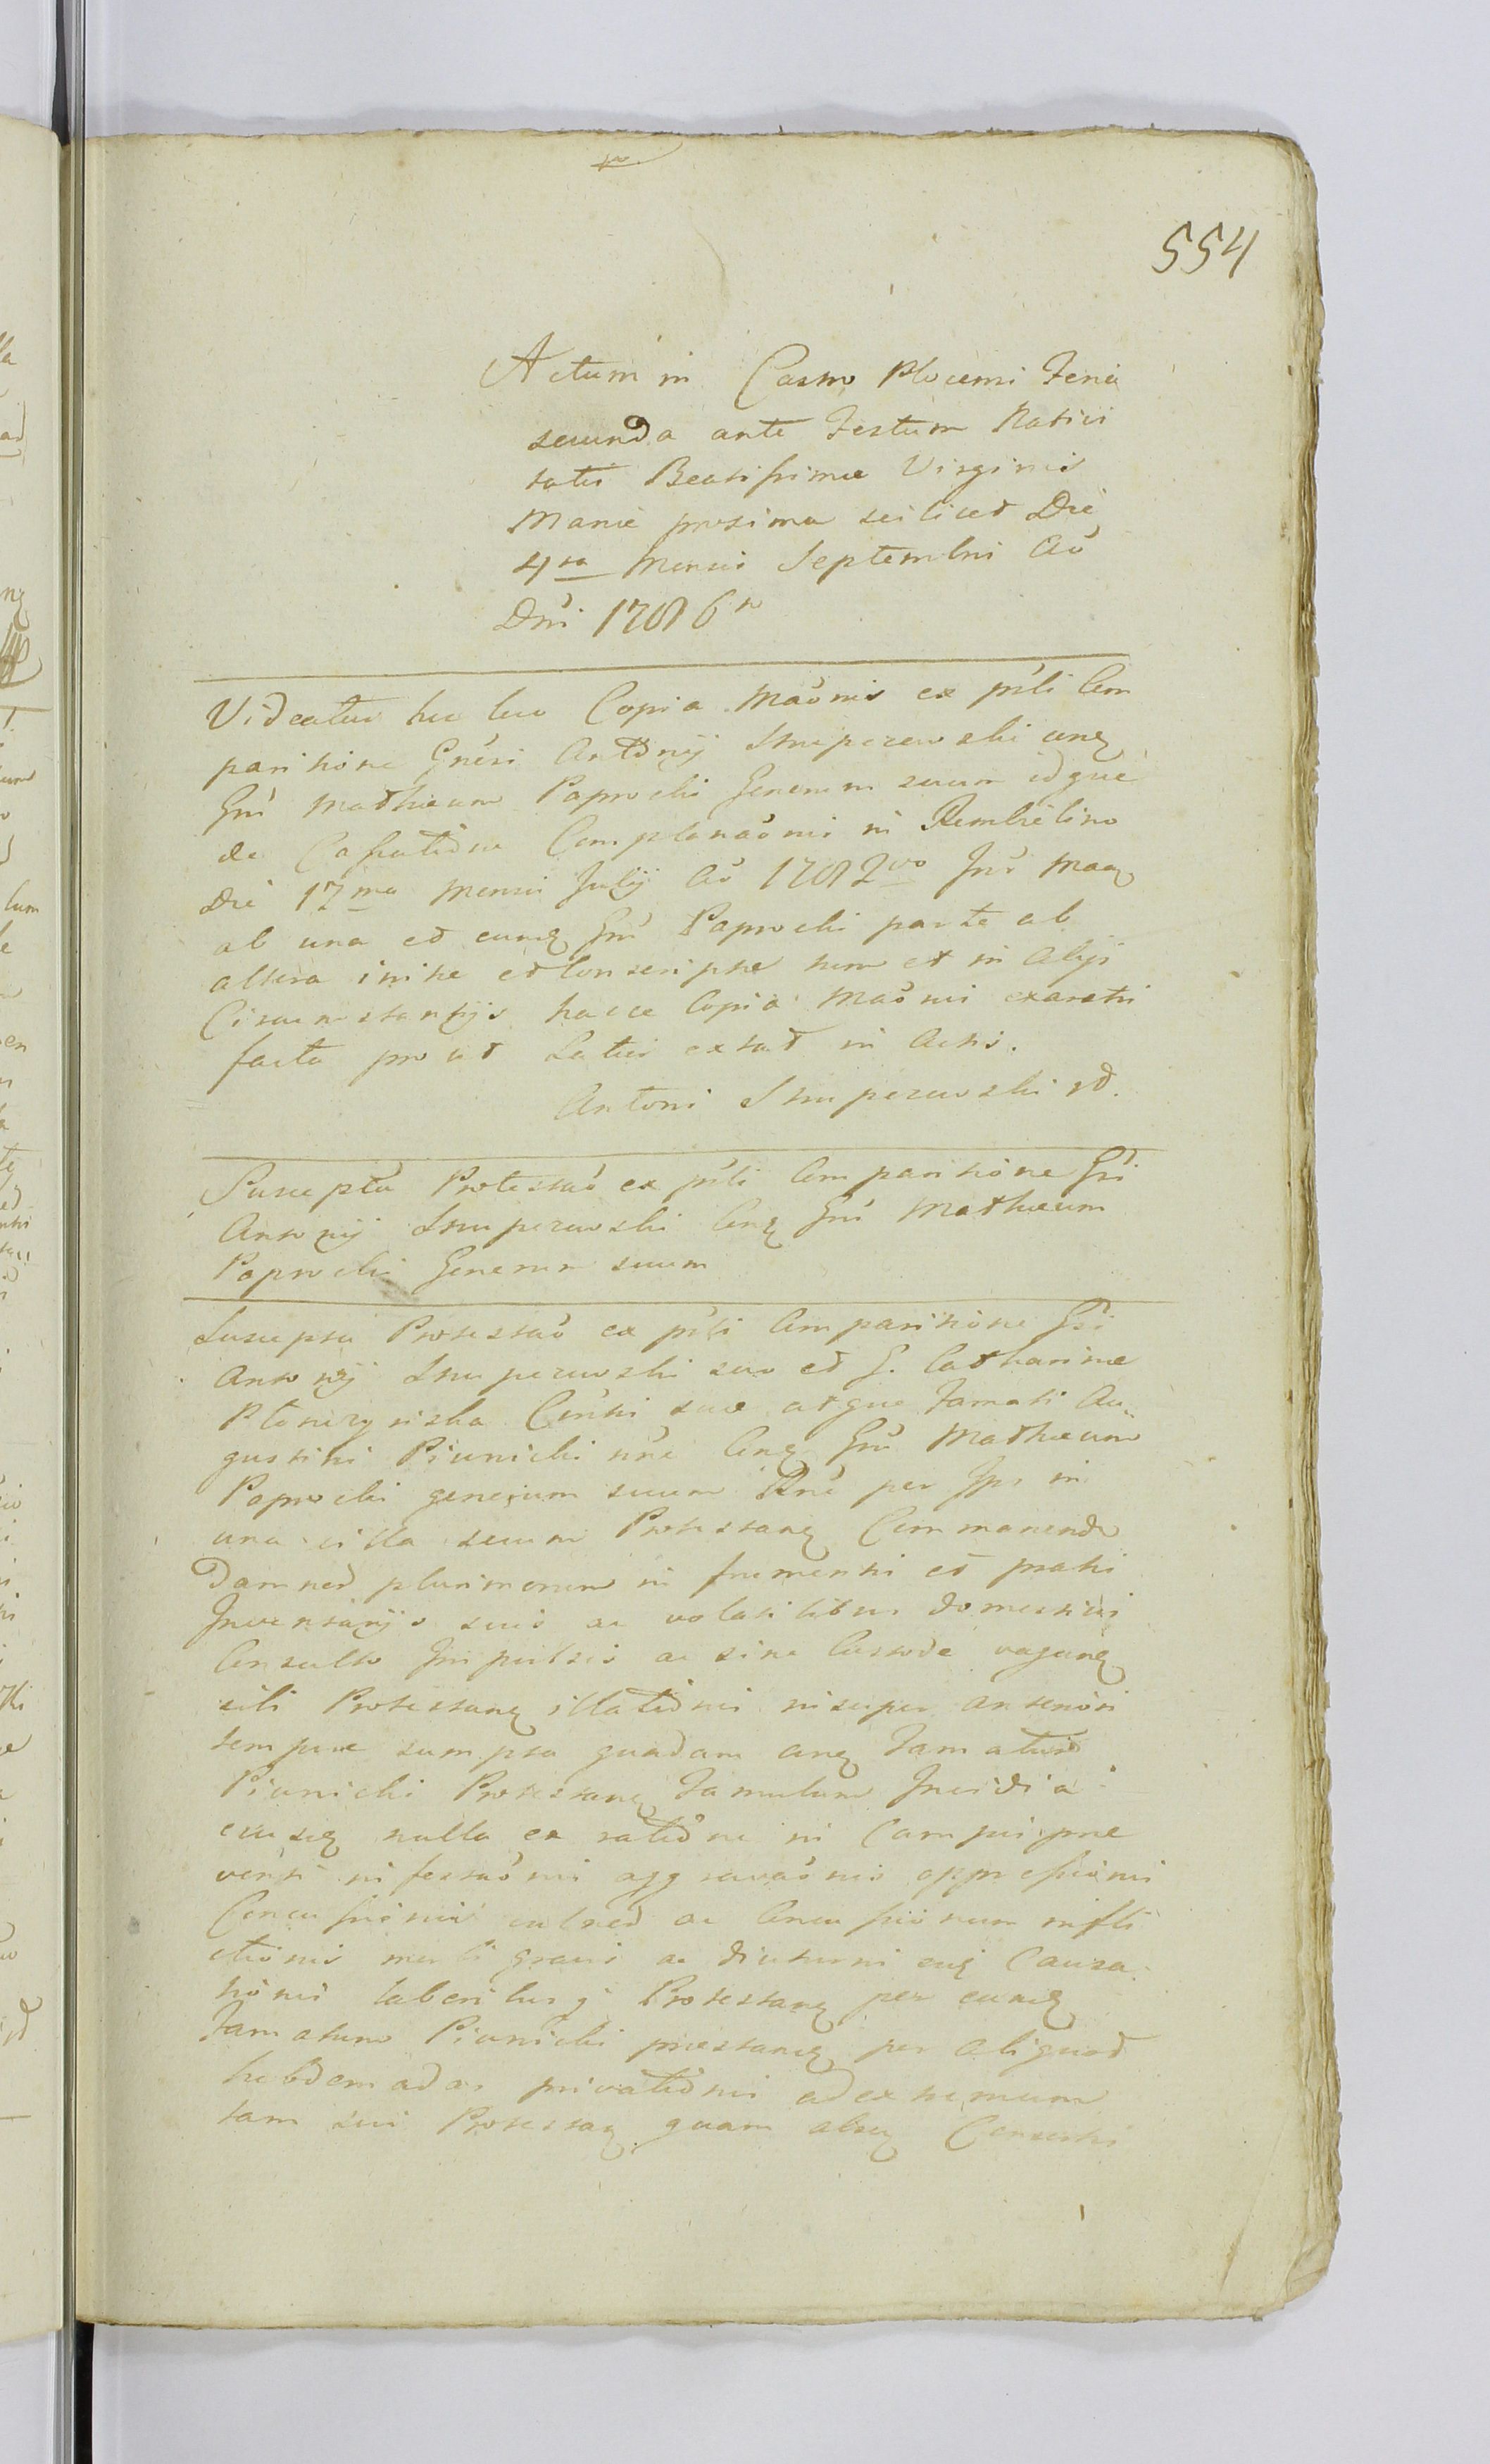 554
Actum in Castro Plocensi Feria
secunda ante Festum Nativi
tatis Beatissimæ Virginis
Mariæ proxima scilicet Die
4ta Mensis Septembris Aô
Dni 1786to
Videatur hic loco Copia Maônis ex psti Com
paritione Gnesi Antonij erga
Gm Mathæum Paprocki Generum suum idque
de Complanaônis in Rembielino
Die 17ma Mensis Julij Aô 1782do Int
ab una et eumq Gm Paprocki parte ab
altera initæ et Conscriptæ tum et in alijs
Circumstantijs hacce Copia Maônis exaratis
facta prout Latius extat in Actis.
Antoni
Suscepta Protestaô ex psti Comparitione Gsi
Antonij Cnq Gm Mathæum
Paprocki Generum suum
Suscepta Protestaô ex psti Comparitione Gsi
Antonij suo et G. Catharinæ
Consti suæ atque Famati Au
gustini Piunicki nne Cnq Gm Mathæum
Paprocki generum suum per Ips in
una villa secum Protestanq Commanende
Damned plurimorum in frumentis et pratis
Inventarijs suis ac volatilibus domesticis
Consulto Impulsis ac sine Custode vaganq
sibi Protestanq illationis insuper anteriori
tempore sumpta quadam cnq Famatum
Piunicki Protestanq Famulum Invidia
eiusq nulla ex ratione in Campis præ
ventis infestaônis aggravaônis oppressionis
Concussionis vulned ac Concussionum infli
ctionis morbi gravis ac diuturni eiq Causa
tionis laboribusq Protestanq per eumq
Famatum Piunicki præstanq per aliquod
hebdemadas privationis ad extremum
tam sui Protestaq quam Consortis